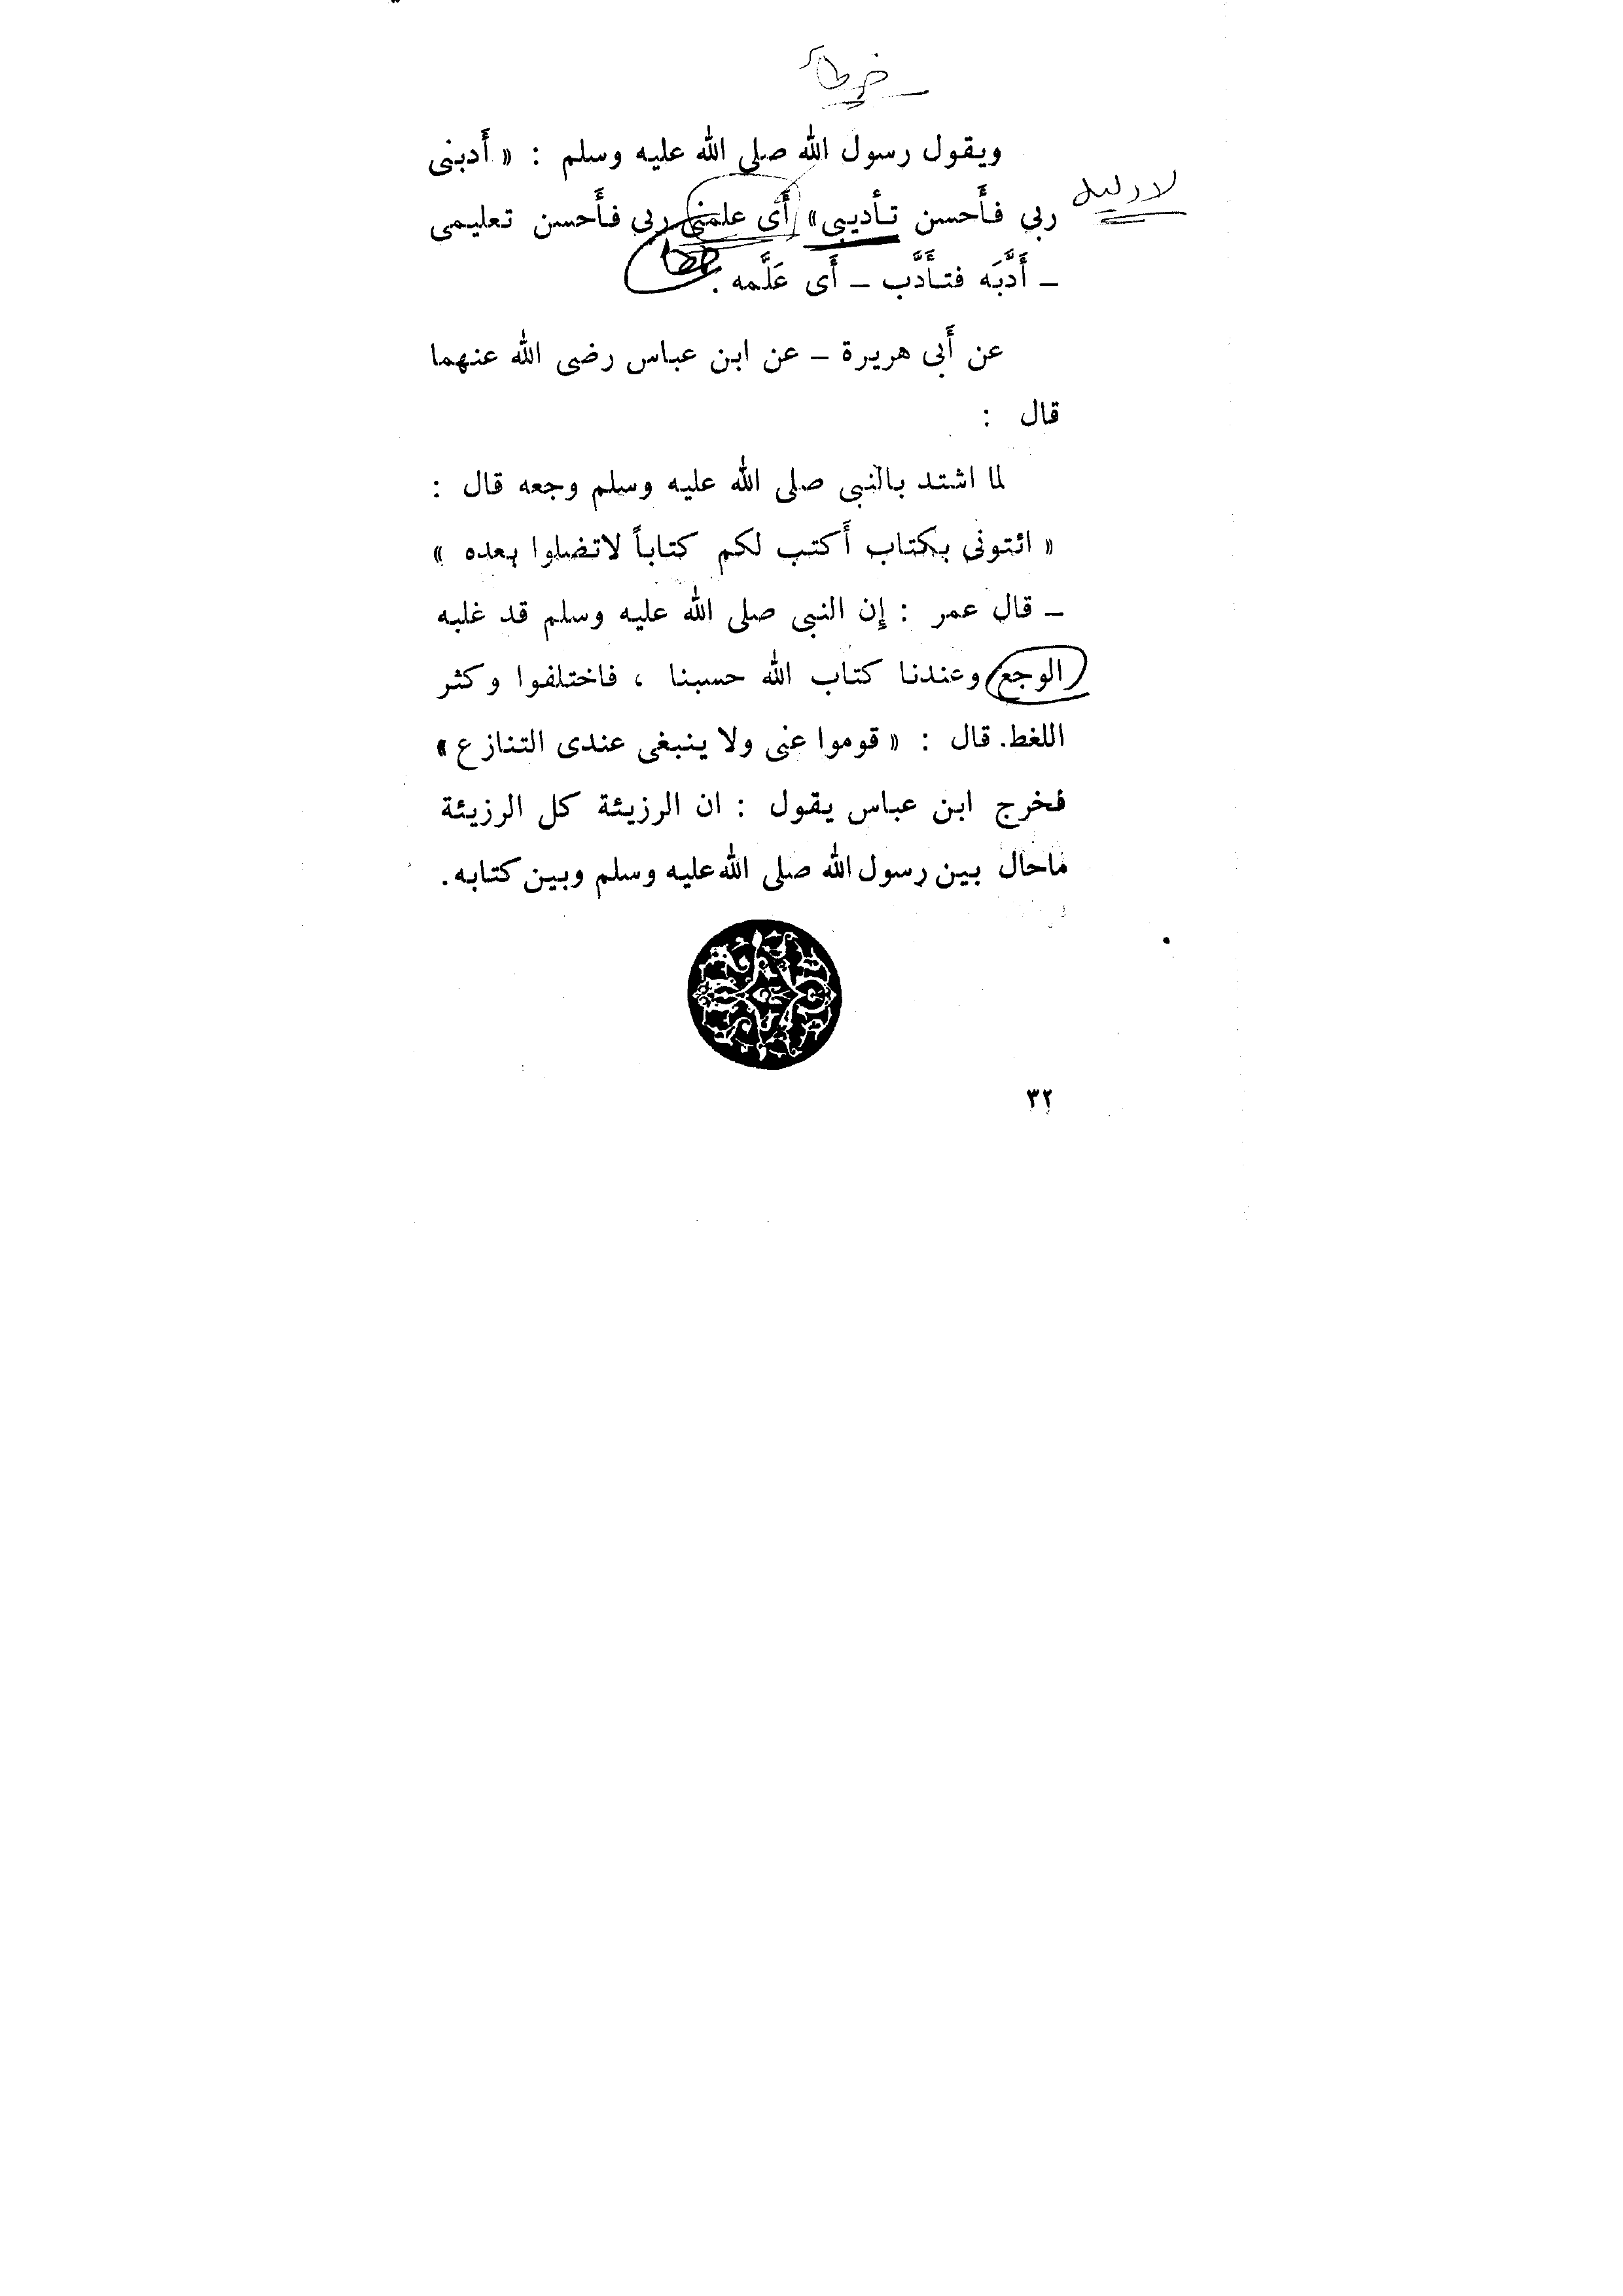 ويقول رسول الله صلى الله عليه وسلم : « أَدبنى
لا دليل
ربي فأَحسن تأديبى » أَى علمنى ربى فأَحسن تعليمى
– أَدَّبَه فتأَدَّب – أَى عَلَّمه .
خطأ
عن أَبى هريرة – عن ابن عباس رضى الله عنهما
قال :
لما اشتد بالنبى صلى الله عليه وسلم وجعه قال :
« ائتونى بكتاب أَكتب لكم كتاباً لاتضلوا بعده »
– قال عمر : إِن النبى صلى الله عليه وسلم قد غلبه
الوجع وعندنا كتاب الله حسبنا ، فاختلفوا وكثر
اللغط. قال : « قوموا عنى ولا ينبغى عندى التنازع »
فخرج ابن عباس يقول : ان الرزيئة كل الرزيئة
ماحال بين رسول الله صلى الله عليه وسلم وبين كتابه .
٣٢